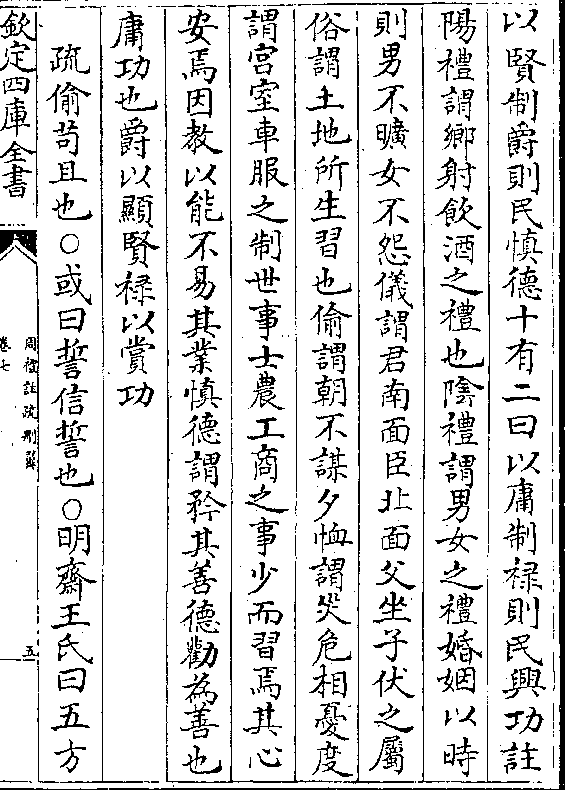 以賢制爵則民慎德十有二曰以庸制禄則民興功註
陽禮謂鄉射飲酒之禮也陰禮謂男女之禮婚姻以時
則男不曠女不怨儀謂君南面臣北面父坐子伏之屬
俗謂土地所生習也偷謂朝不謀夕恤謂災危相憂度
謂宫室車服之制世事士農工商之事少而習焉其心
安焉因教以能不易其業慎德謂矜其善德勸為善也
庸功也爵以顯賢禄以賞功
疏偷苟且也○或曰誓信誓也○明齋王氏曰五方
欽定四庫全書
周禮註疏刪翼
卷七
五